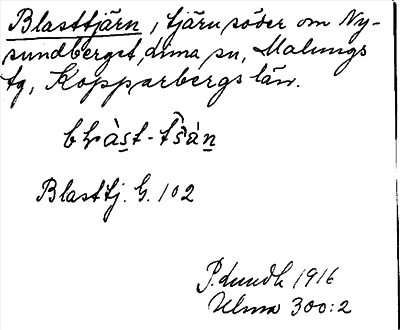 Blasttjärn, tjärn söder om Ny-
sundberget, Lima sn, Malungs
tg, Kopparbergs län.
Blasttj. G. 102
P. Lundh 1916
Ulma 300:2